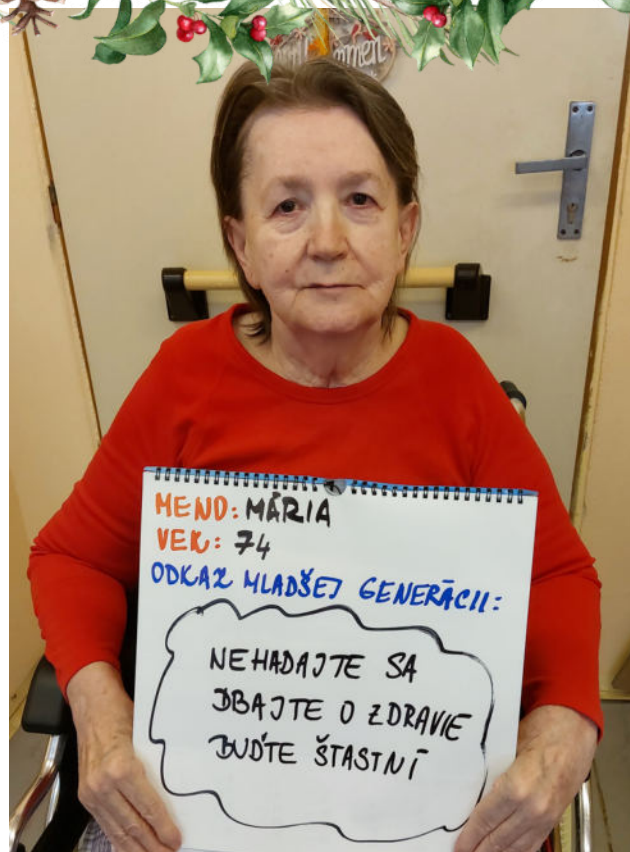 MENO: MÁRIA
VEK: 74
ODKAZ MLADŠEJ GENERÁCII:
NEHADAJTE SA
DBAJTE O ZDRAVIE
BUĎTE ŠTASTNÍ